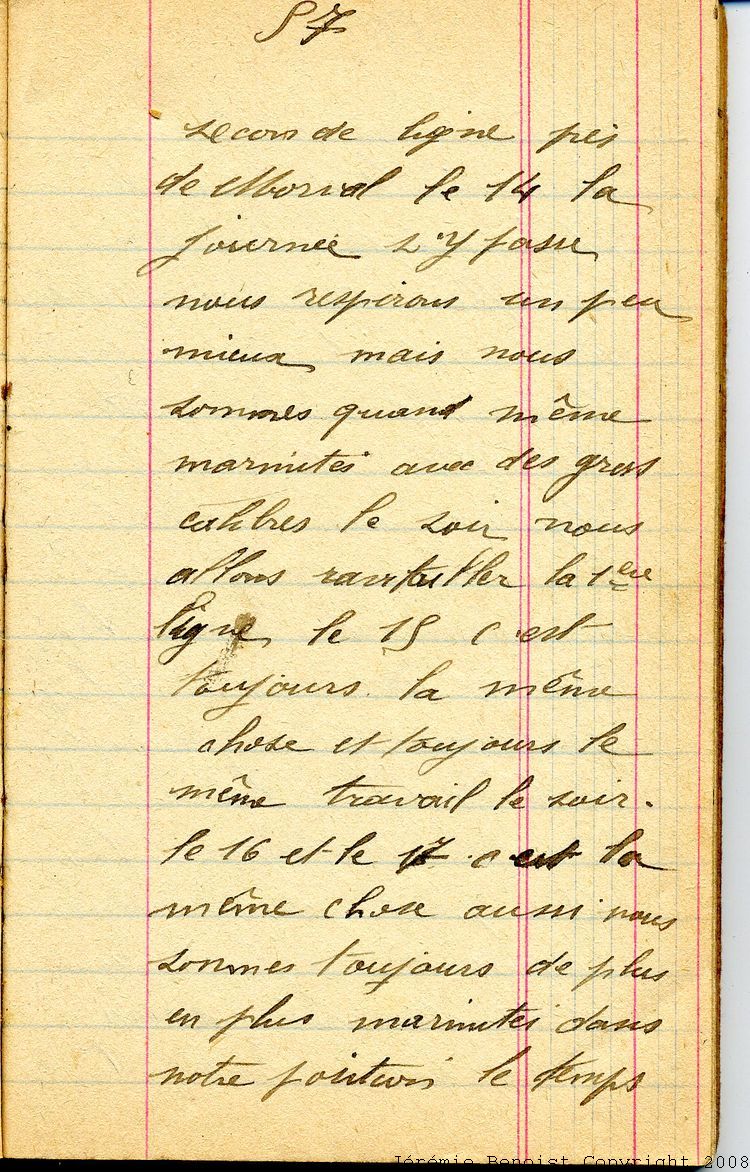 57
seconde ligne près
de Morval le 14 la
journée s'y passe
nous respirons un peu
mieux mais nous
sommes quand même
marmités avec des gros
calibres le soir nous
allons ravitailler la 1ère
ligne le 15 c'est
toujours la même
chose et toujours le
même travail le soir.
le 16 et le 17 c'est la
même chose aussi nous
sommes toujours de plus
en plus marmités dans
notre position le temps
Jérémie Benoist Copyright 2008